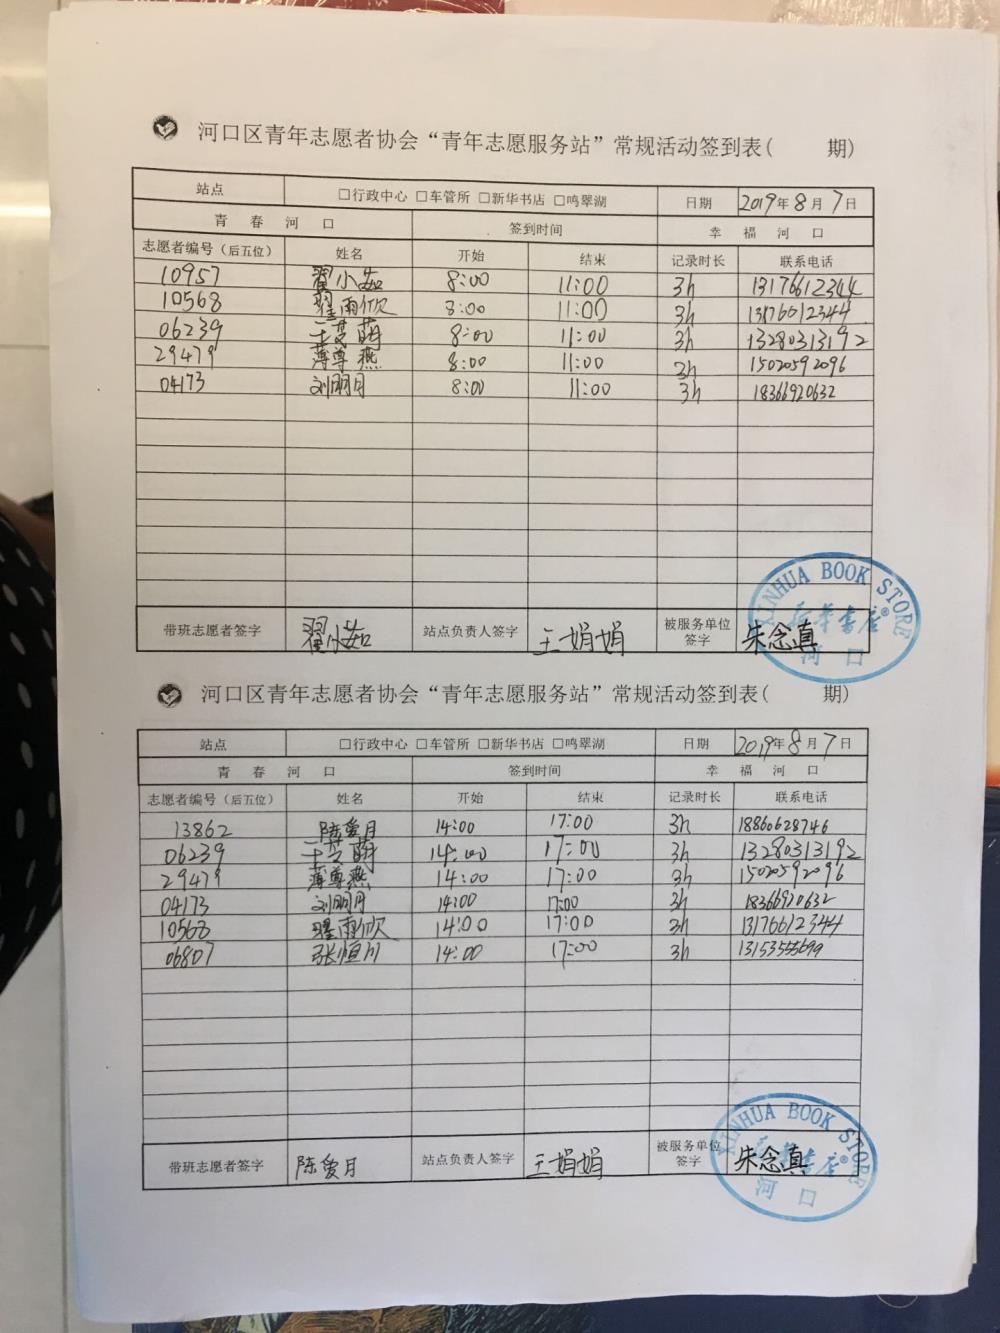 河口区青年志愿者协会“青年志愿服务站”常规活动签到表( 期)
站点 □行政中心 □车管所 □新华书店 □鸣翠湖 日期 2019年8月7日
青春河口 签到时间 幸福河口
志愿者编号（后五位） 姓名 开始 结束 记录时长 联系电话
10957 翟小茹 8:00 11:00 3h 13176612344
10568 翟雨欣 8:00 11:00 3h 13176612344
06239 8:00 11:00 3h 13280313192
29479 薄尊燕 8:00 11:00 3h 15020592096
04173 刘明月 8:00 11:00 3h 18366920632
带班志愿者签字 翟小茹 站点负责人签字 王娟娟 被服务单位签字 朱念真
XINHUA BOOK STORE
新华书店®
河口
河口区青年志愿者协会“青年志愿服务站”常规活动签到表( 期)
站点 □行政中心 □车管所 □新华书店 □鸣翠湖 日期 2019年8月7日
青春河口 签到时间 幸福河口
志愿者编号（后五位） 姓名 开始 结束 记录时长 联系电话
13862 陈爱月 14:00 17:00 3h 18860628746
06239 14:00 17:00 3h 13280313192
29479 薄尊燕 14:00 17:00 3h 15020592096
04173 刘明月 14:00 17:00 3h 18366920632
10568 翟雨欣 14:00 17:00 3h 13176612344
06807 张恒川 14:00 17:00 3h
带班志愿者签字 陈爱月 站点负责人签字 王娟娟 被服务单位签字 朱念真
XINHUA BOOK STORE
新华书店®
河口